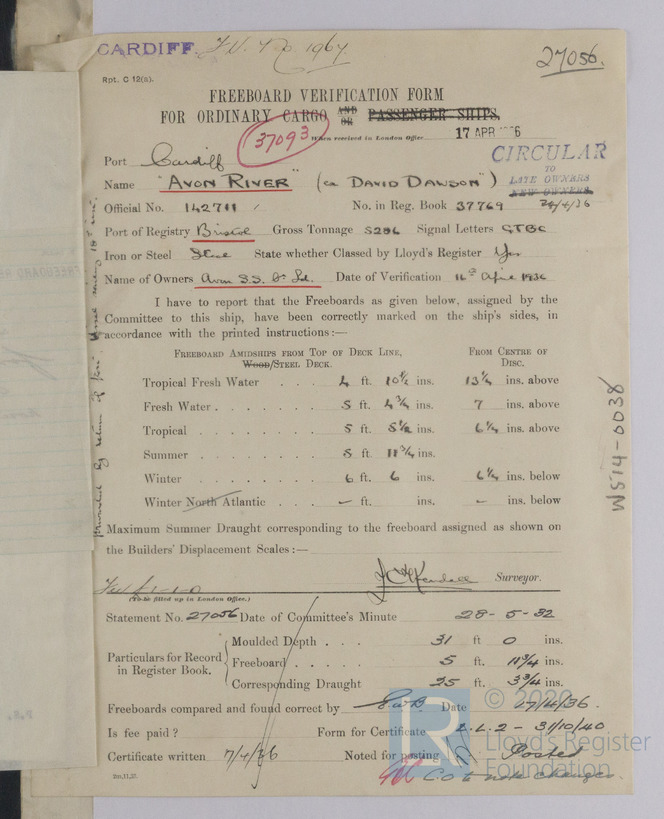 CARDIFF. 1967
27056.
Rpt. C 12(a).
FREEBOARD VERIFICATION FORM
FOR ORDINARY CARGO AND OR PASSENGER SHIPS.
37093
When received in London Office 17 APR 36
CIRCULAR
TO
LATE OWNERS
NEW OWNERS.
24/4/36
Port Cardiff
Name "AVON RIVER" (ex DAVID DAWSON")
Official No. 142711 No. in Reg. Book 37769
Port of Registry Bristol Gross Tonnage 5286 Signal Letters GTBC
Iron or Steel Steel State whether Classed by Lloyd's Register Yes
Name of Owners Avon S.S. Co Ld. Date of Verification 16th April 1936
I have to report that the Freeboards as given below, assigned by the
Committee to this ship, have been correctly marked on the ship's sides, in
accordance with the printed instructions :—
FREEBOARD AMIDSHIPS FROM TOP OF DECK LINE, FROM CENTRE OF
WOOD/STEEL DECK. DISC.
Tropical Fresh Water . . . 4 ft. 10½ ins. 13¼ ins. above
Fresh Water . . . . . . . 5 ft. 4¾ ins. 7 ins. above
Tropical . . . . . . . . 5 ft. 5½ ins. 6¼ ins. above
Summer . . . . . . . . 5 ft. 11¾ ins.
Winter . . . . . . . . 6 ft. 6 ins. 6¼ ins. below
Winter North Atlantic . . . – ft. ins. – ins. below
Maximum Summer Draught corresponding to the freeboard assigned as shown on
the Builders' Displacement Scales :—
J. Kendall Surveyor.
(To be filled up in London Office.)
Statement No. 27056 Date of Committee's Minute 28-5-32
Particulars for Record in Register Book.
Moulded Depth . . . 31 ft 0 ins.
Freeboard . . . . . 5 ft. 11¾ ins.
Corresponding Draught 25 ft. 3¾ ins.
Freeboards compared and found correct by E.W.B. Date 17/4/36.
Is fee paid? Form for Certificate L.L.2 - 31/10/40
Certificate written 7/4/36 Noted for posting Posted
C.O to note changes.
2m,11,32.
W514-0038
© 2020
Lloyd's Register
Foundation